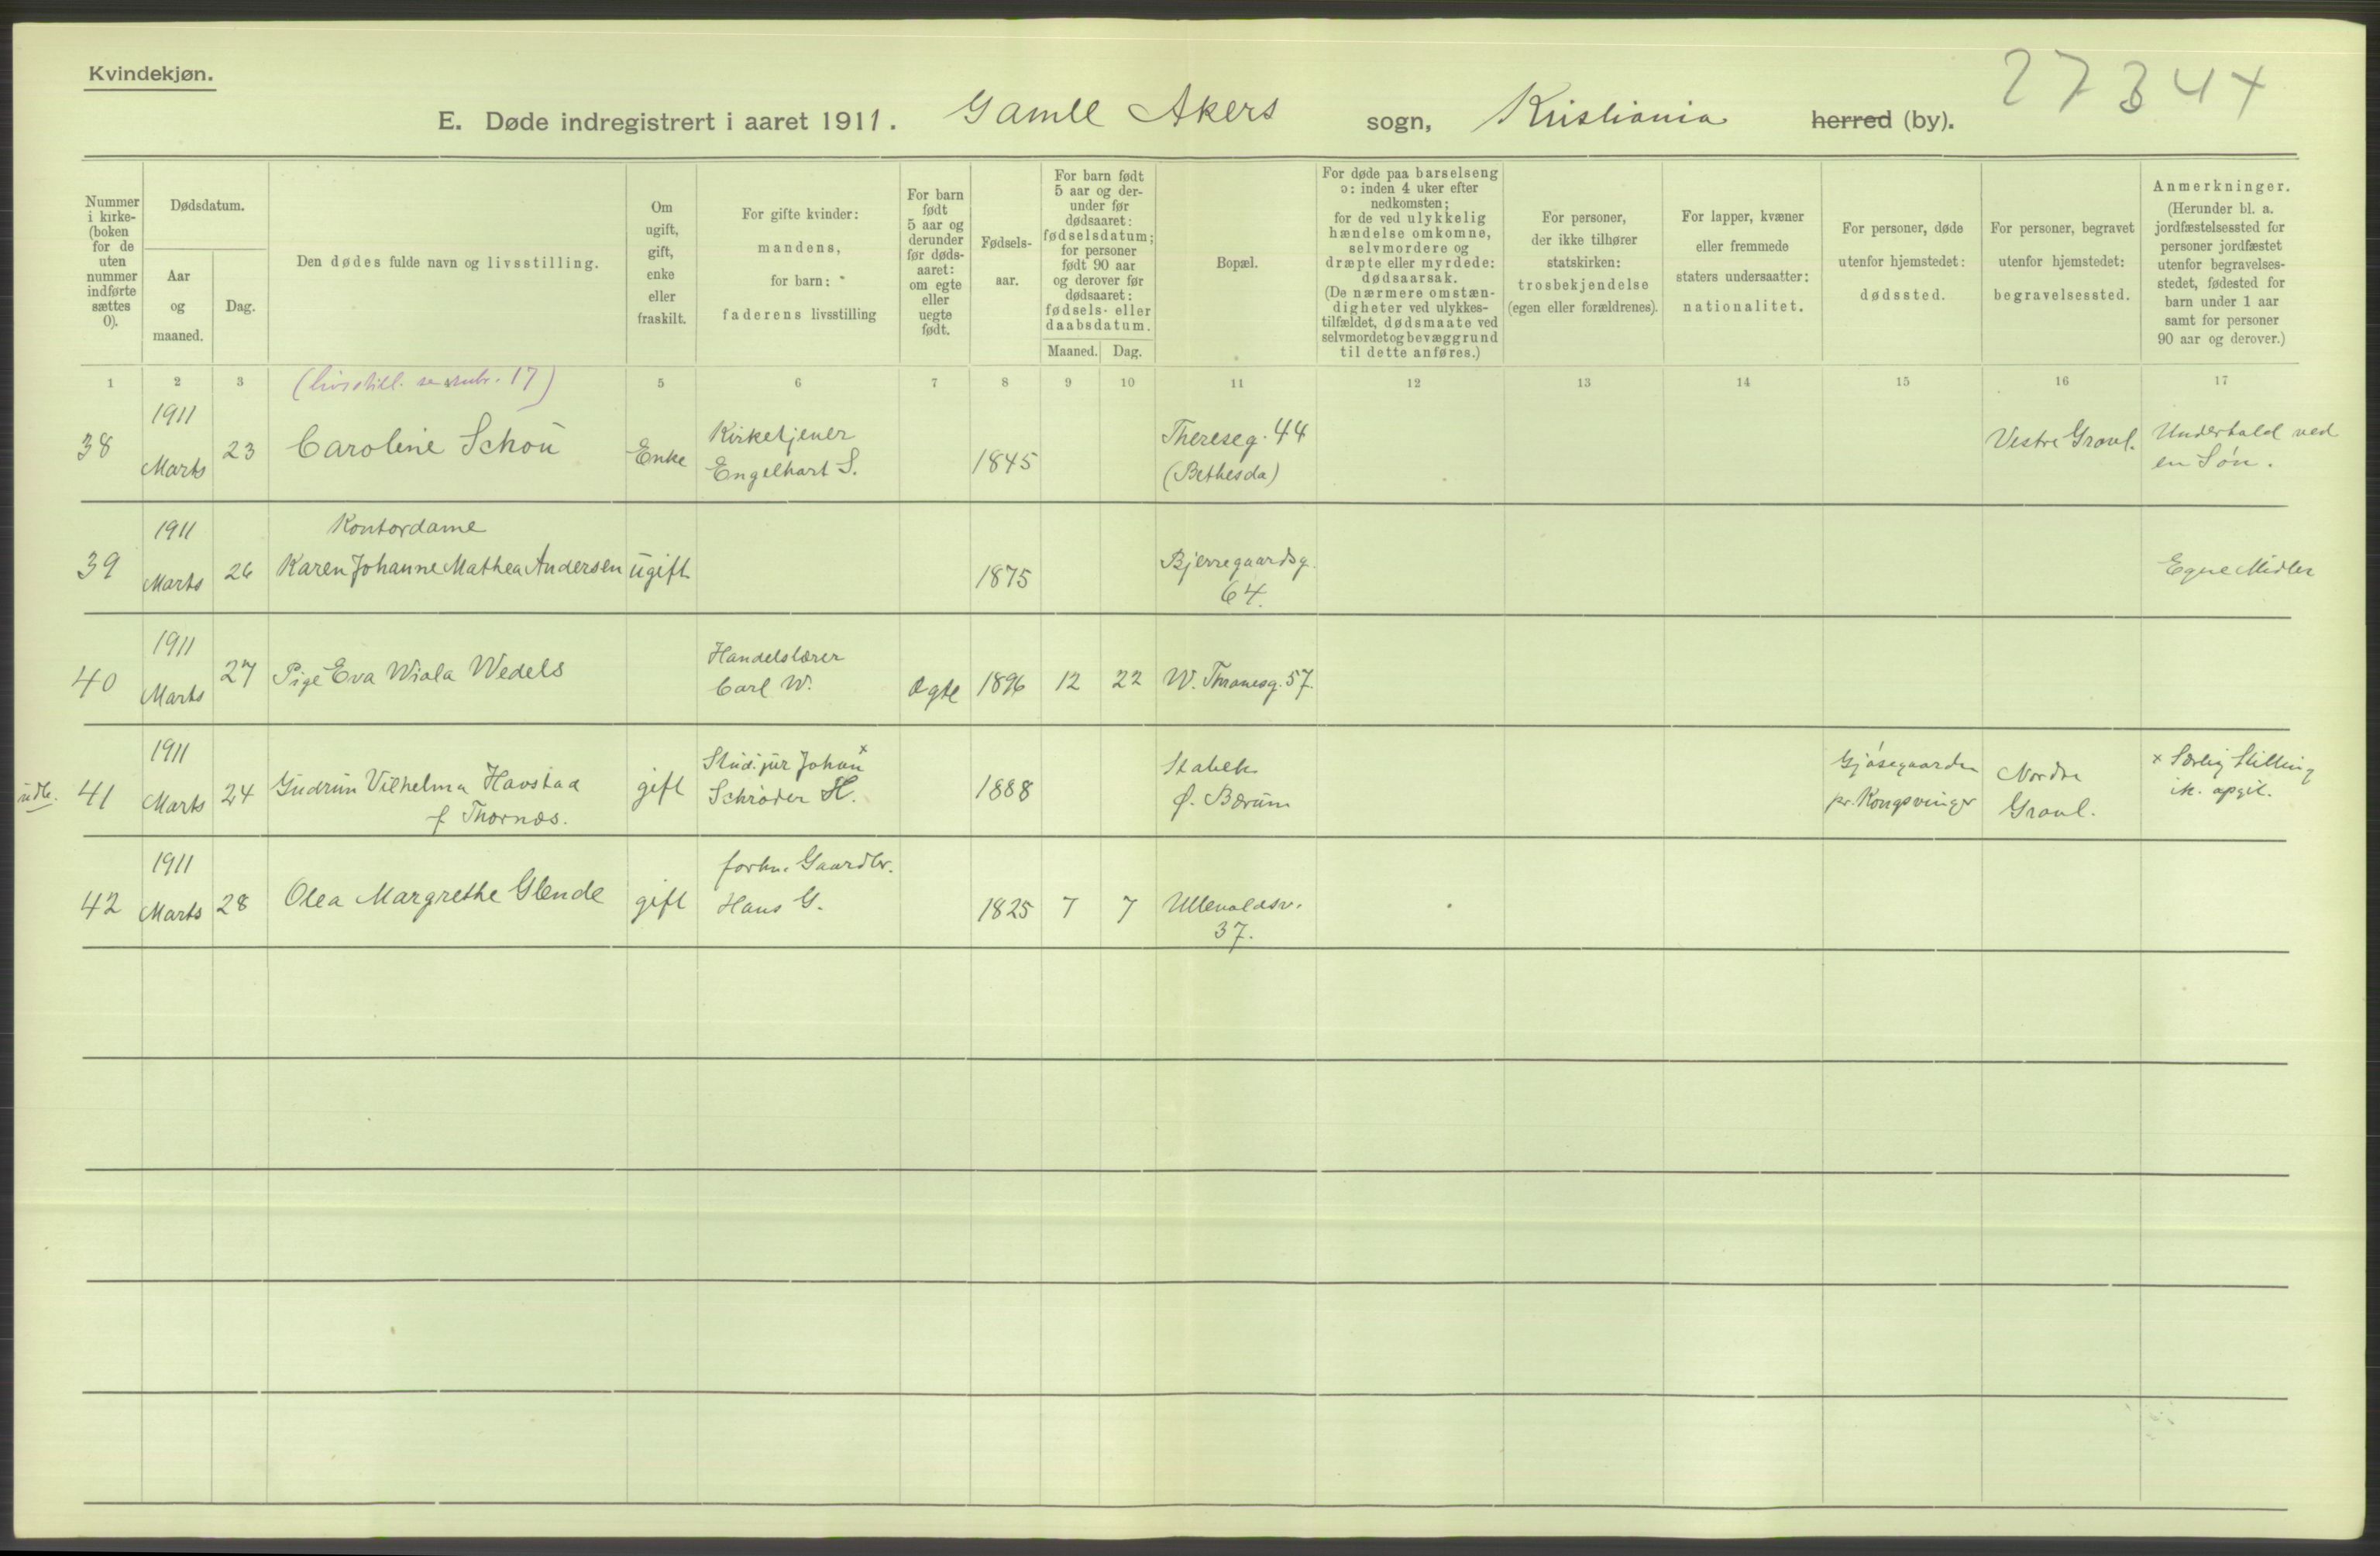 Kvindekjøn.
27344
E. Døde indregistrert i aaret 1911. Gamle Akers sogn, Kristiania herred (by).
Nummer i kirke-(boken for de uten nummer indførte sættes 0).
Dødsdatum.
Aar og maaned.
Dag.
Den dødes fulde navn og livsstilling.
Om ugift, gift, enke eller fraskilt.
For gifte kvinder: mandens, for barn: faderens livsstilling
For barn født 5 aar og derunder før døds-aaret: om egte eller uegte født.
Fødsels-aar.
For barn født 5 aar og der-under før dødsaaret: fødselsdatum; for personer født 90 aar og derover før dødsaaret: fødsels- eller daabsdatum.
Maaned. Dag.
Bopæl.
For døde paa barselseng ɔ: inden 4 uker efter nedkomsten; for de ved ulykkelig hændelse omkomne, selvmordere og dræpte eller myrdede: dødsaarsak. (De nærmere omstæn-digheter ved ulykkes-tilfældet, dødsmaate ved selvmordet og bevæggrund til dette anføres.)
For personer, der ikke tilhører statskirken: trosbekjendelse (egen eller forældrenes).
For lapper, kvæner eller fremmede staters undersaatter: nationalitet.
For personer, døde utenfor hjemstedet: dødssted.
For personer, begravet utenfor hjemstedet: begravelsessted.
Anmerkninger. (Herunder bl. a. jordfæstelsessted for personer jordfæstet utenfor begravelses-stedet, fødested for barn under 1 aar samt for personer 90 aar og derover.)
1 2 3 (livsstill. se rubr. 17) 5 6 7 8 9 10 11 12 13 14 15 16 17
38 1911 Marts 23 Caroline Schou Enke Kirketjener Engelhart S. 1845 Thereseg. 44 (Bethesda) Vestre Gravl. Underhold ved en Søn.
39 1911 Marts 26 Kontordame Karen Johanne Mathea Andersen ugift 1875 Bjerregaardsg. 64. Egne Midler
40 1911 Marts 27 Pige Eva Wiola Wedels Handelslærer Carl W. Ægte 1896 12 22 W. Thranesg. 57.
udb. 41 1911 Marts 24 Gudrun Vilhelma Havstad f Thornæs. gift Stud. jur Johan x Schrøder H. 1888 Stabek Ø. Bærum Gjøsegaarden pr. Kongsvinger Nordre Gravl. x Særlig Stilling ik. opgit.
42 1911 Marts 28 Olea Margrethe Glende gift forhv. Gaardbr. Hans G. 1825 7 7 Ullevoldsv. 37.